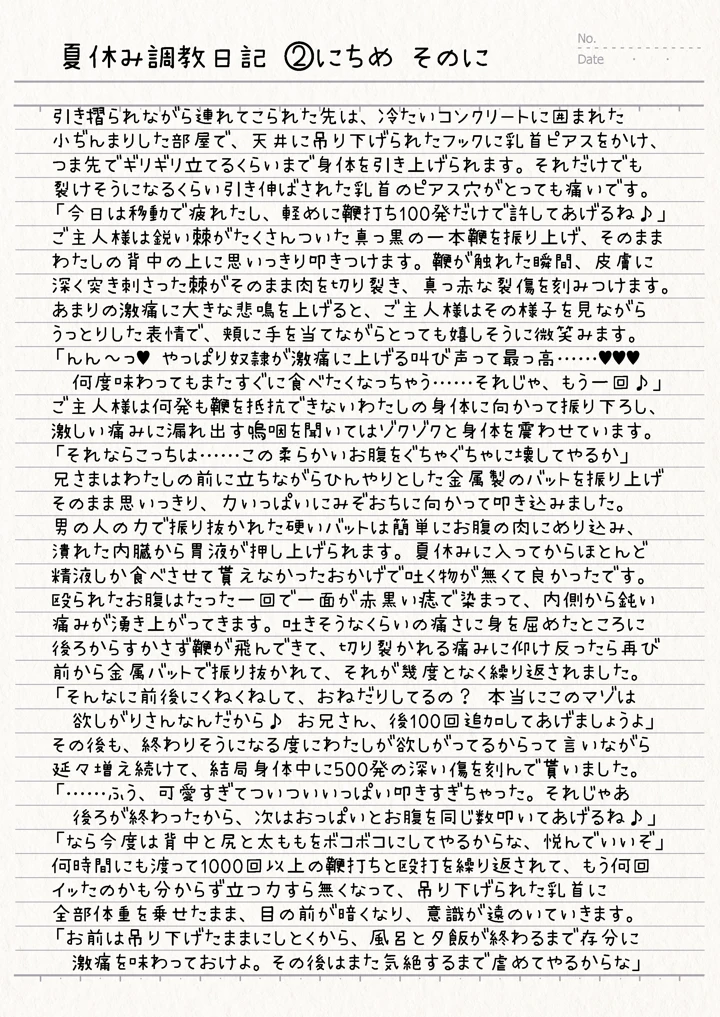 No.
Date
夏休み調教日記 ②にちめ そのに
引き摺られながら連れてこられた先は、冷たいコンクリートに囲まれた
小ぢんまりした部屋で、天井に吊り下げられたフックに乳首ピアスをかけ、
つま先でギリギリ立てるくらいまで身体を引き上げられます。それだけでも
裂けそうになるくらい引き伸ばされた乳首のピアス穴がとっても痛いです。
「今日は移動で疲れたし、軽めに鞭打ち100発だけで許してあげるね♪」
ご主人様は鋭い棘がたくさんついた真っ黒の一本鞭を振り上げ、そのまま
わたしの背中の上に思いっきり叩きつけます。鞭が触れた瞬間、皮膚に
深く突き刺さった棘がそのまま肉を切り裂き、真っ赤な裂傷を刻みつけます。
あまりの激痛に大きな悲鳴を上げると、ご主人様はその様子を見ながら
うっとりした表情で、頬に手を当てながらとっても嬉しそうに微笑みます。
「んん〜っ♥ やっぱり奴隷が激痛に上げる叫び声って最っ高……♥♥♥
何度味わってもまたすぐに食べたくなっちゃう……それじゃ、もう一回♪」
ご主人様は何発も鞭を抵抗できないわたしの身体に向かって振り下ろし、
激しい痛みに漏れ出す嗚咽を聞いてはゾクゾクと身体を震わせています。
「それならこっちは……この柔らかいお腹をぐちゃぐちゃに壊してやるか」
兄さまはわたしの前に立ちながらひんやりとした金属製のバットを振り上げ
そのまま思いっきり、力いっぱいにみぞおちに向かって叩き込みました。
男の人の力で振り抜かれた硬いバットは簡単にお腹の肉にめり込み、
潰れた内臓から胃液が押し上げられます。夏休みに入ってからほとんど
精液しか食べさせて貰えなかったおかげで吐く物が無くて良かったです。
殴られたお腹はたった一回で一面が赤黒い痣で染まって、内側から鈍い
痛みが湧き上がってきます。吐きそうなくらいの痛さに身を屈めたところに
後ろからすかさず鞭が飛んできて、切り裂かれる痛みに仰け反ったら再び
前から金属バットで振り抜かれて、それが幾度となく繰り返されました。
「そんなに前後にくねくねして、おねだりしてるの？ 本当にこのマゾは
欲しがりさんなんだから♪ お兄さん、後100回追加してあげましょうよ」
その後も、終わりそうになる度にわたしが欲しがってるからって言いながら
延々増え続けて、結局身体中に500発の深い傷を刻んで貰いました。
「……ふう、可愛すぎてついついいっぱい叩きすぎちゃった。それじゃあ
後ろが終わったから、次はおっぱいとお腹を同じ数叩いてあげるね♪」
「なら今度は背中と尻と太ももをボコボコにしてやるからな、悦んでいいぞ」
何時間にも渡って1000回以上の鞭打ちと殴打を繰り返されて、もう何回
イッたのかも分からず立つ力すら無くなって、吊り下げられた乳首に
全部体重を乗せたまま、目の前が暗くなり、意識が遠のいていきます。
「お前は吊り下げたままにしとくから、風呂と夕飯が終わるまで存分に
激痛を味わっておけよ。その後はまた気絶するまで虐めてやるからな」